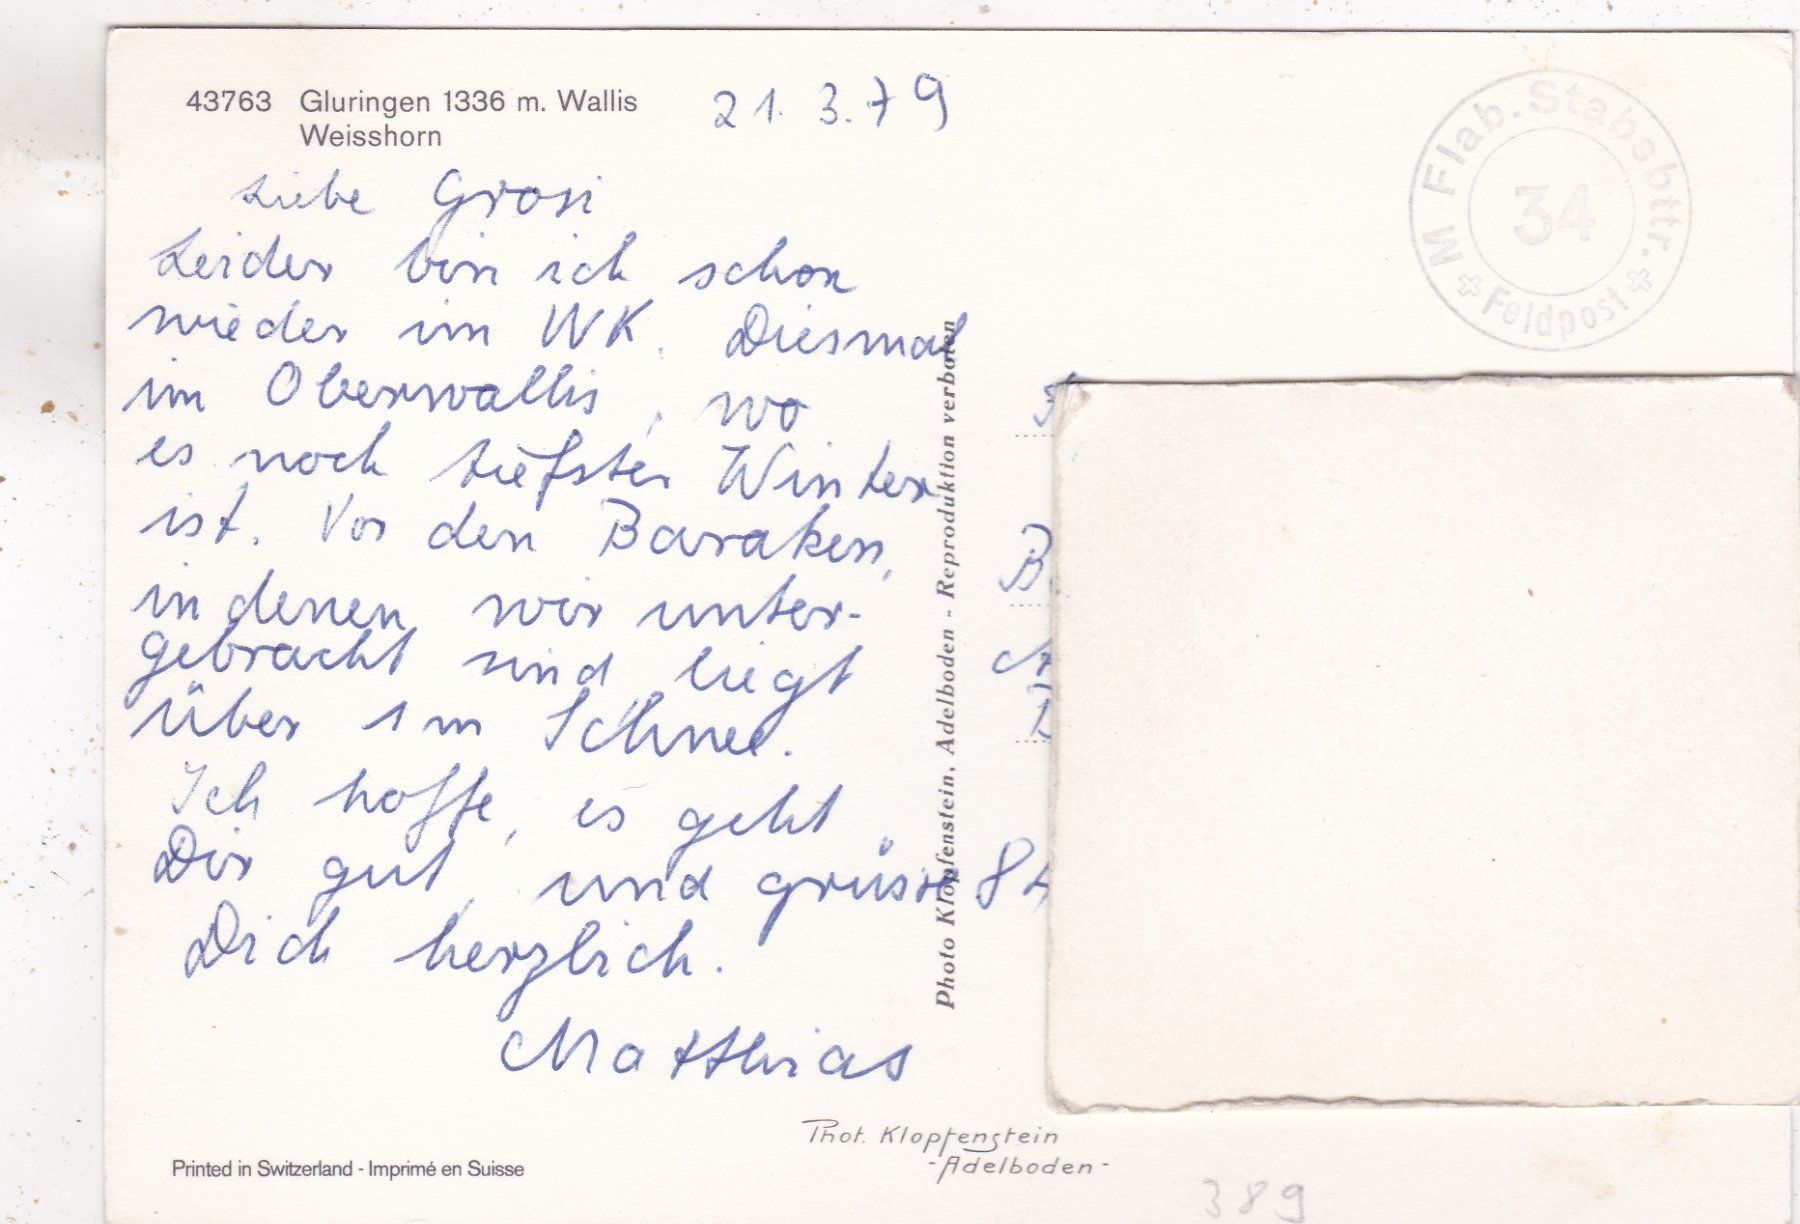 43763 Gluringen 1336 m. Wallis
Weisshorn
21. 3. 79
Liebe Grosi
Leider bin ich schon
wieder im WK. Diesmal
im Oberwallis, wo
es noch tiefster Winter
ist. Vor den Baraken,
in denen wir unter-
gebracht sind liegt
über 1 m Schnee.
Ich hoffe, es geht
Dir gut, und grüsse
Dich herzlich.
Matthias
Photo Klopfenstein, Adelboden - Reproduktion verboten
M Flab. Stabsbttr.
34
Feldpost
B
8
Phot. Klopfenstein
-Adelboden-
Printed in Switzerland - Imprimé en Suisse
389